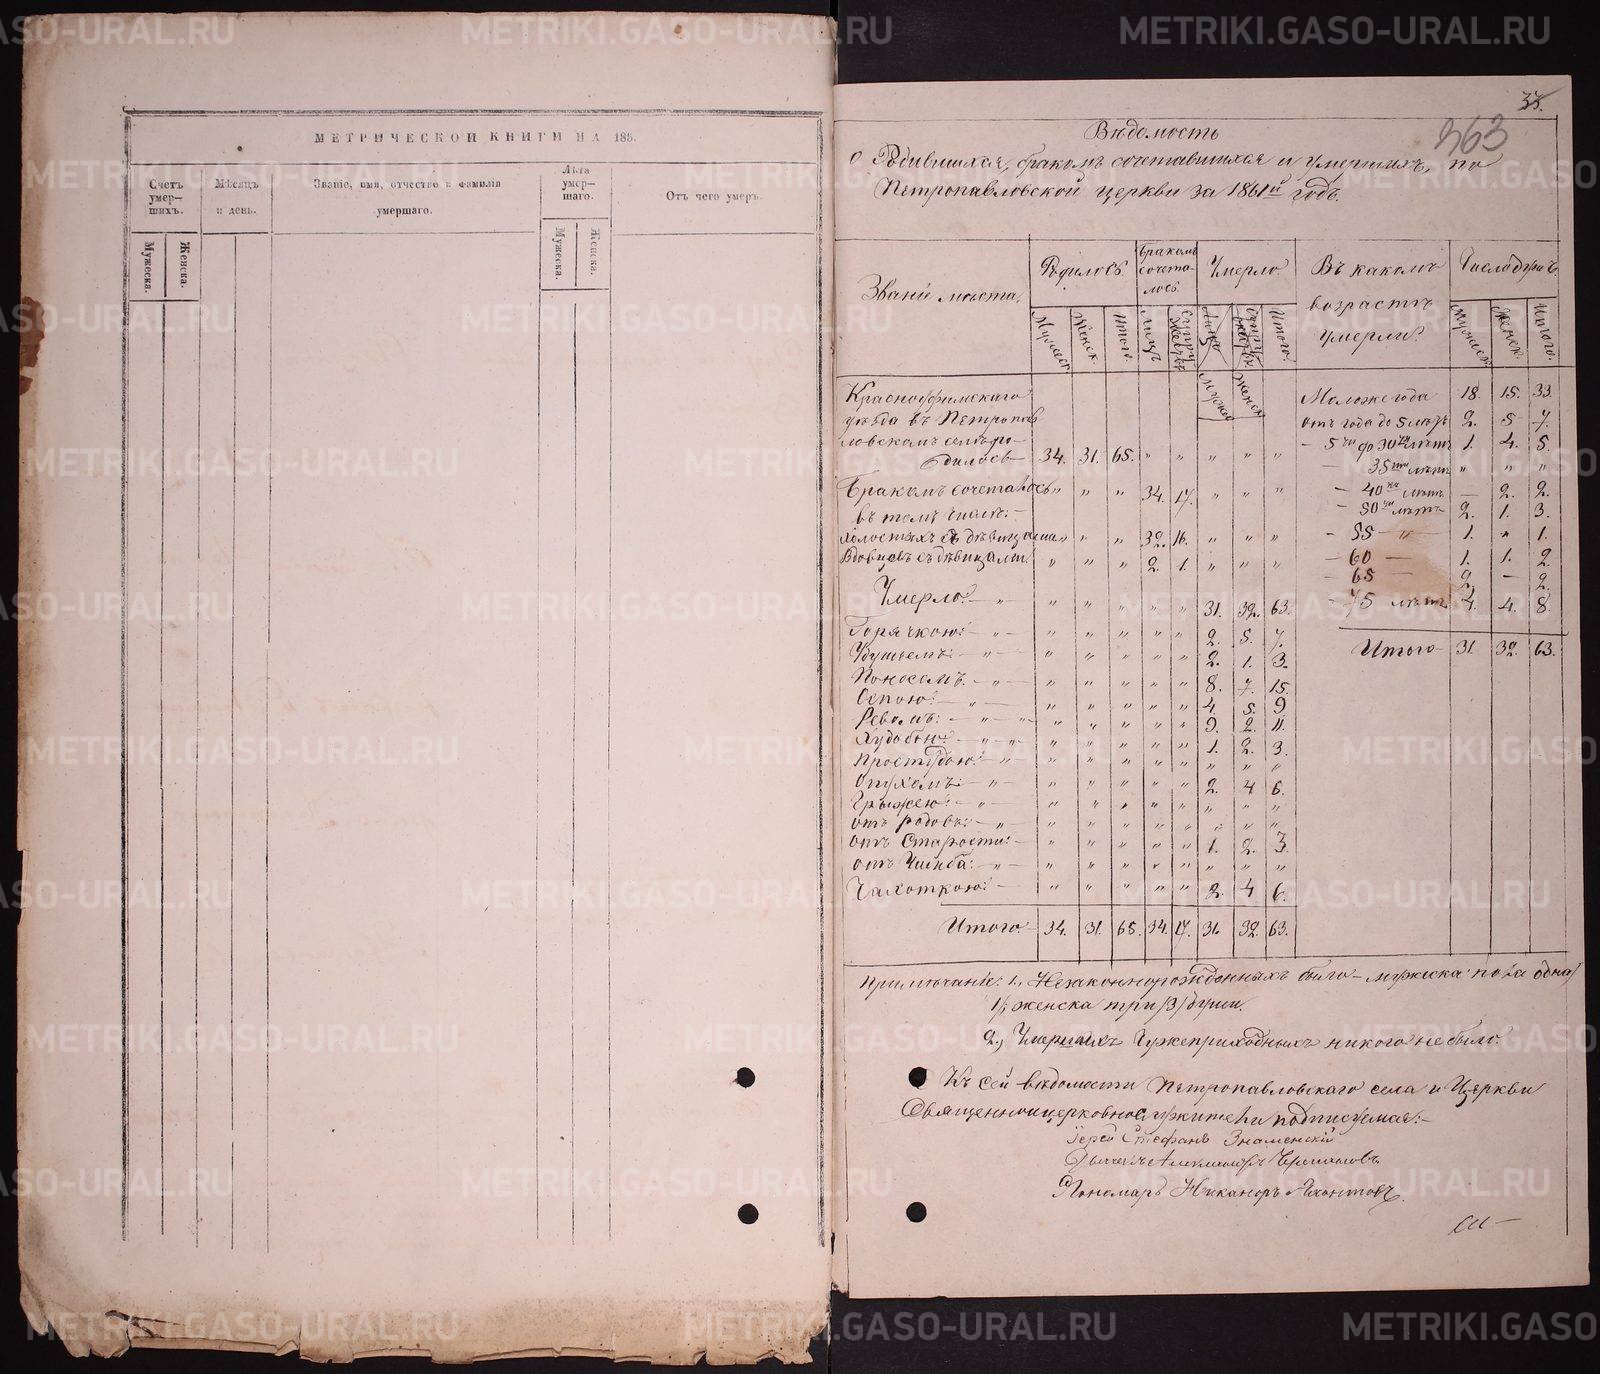 МЕТРИЧЕСКОЙ КНИГИ НА 185.
Счетъ умер-шихъ.
Мужеска.
Женска.
Мѣсяцъ и день.
Званіе, имя, отчество и фамилія умершаго.
Лѣта умер-шаго.
Мужеска.
Женска.
Отъ чего умеръ.
363
Вѣдомость
о Родившихся, бракомъ сочетавшихся и умершихъ, по
Петропавловской церкви за 1861й годъ.
Званіе мѣста.
Родилось
Мужеск.
Женск.
Итого.
Бракомъ сочета-лось
Лицъ
Супружествъ
Умерло
Мужеск
Женск
Итого.
Въ какомъ возрастѣ умерли?
Число душъ.
Мужеск.
Женск.
Итого.
Красноуфимскаго
уѣзда въ Петропав
ловскомъ селѣ ро-
дилось 34. 31. 65. " " " " "
Бракомъ сочеталось " " " 34. 17. " " "
въ томъ числѣ: -
холостыхъ съ дѣвицами " " " 32. 16. " " "
Вдовцевъ съ дѣвицами. " " " 2. 1. " " "
Умерло: - " - " " " " " 31. 32. 63.
Горячкою: - " - " " " " " 2. 5. 7.
Удушьемъ: - " - " " " " " 2. 1. 3.
Поносомъ. - " - " " " " " 8. 7. 15.
Оспою: - " - " " " " " 4. 5. 9
Ревомъ: - " - " - " " " " " 9. 2. 11.
Худобою: - " - " - " " " " " 1. 2. 3.
Простудою: - " - " " " " " " " "
Опухолъ: - " - " " " " " 2. 4 6.
Грыжею: - " - " " " " " " " "
отъ родовъ: - " " " " " " " " "
отъ Старости: - " " " " " 1. 2. 3.
отъ Ушиба: - " - " " " " " " " "
Чахоткою: - " " " " " 2. 4 6.
Итого - 34. 31. 65. 34. 17. 31. 32. 63.
Моложе года 18. 15. 33.
отъ года до 5 лѣтъ 2. 5 7.
- 5ти до 30ти лѣтъ 1. 4. 5.
- 35ти лѣтъ " " "
- 40ти лѣтъ - 2. 2.
- 50ти лѣтъ 2. 1. 3.
- 55 - " - 1. " 1.
- 60 - 1. 1. 2
- 65 - 2. - 2.
- 75 лѣтъ 4. 4. 8.
Итого - 31. 32. 63.
Примѣчаніе: 1., Незаконнорожденныхъ было - мужеска пола одна
1/, женска три /3/ души.
2.) Умершихъ Чужеприходныхъ никого не было.
Къ сей вѣдомости Петропавловскаго села и Церкви
Священноцерковнослужители подписуемся: -
Іерей Стефанъ Знаменскій
Пономарь Никаноръ
METRIKI.GASO-URAL.RU